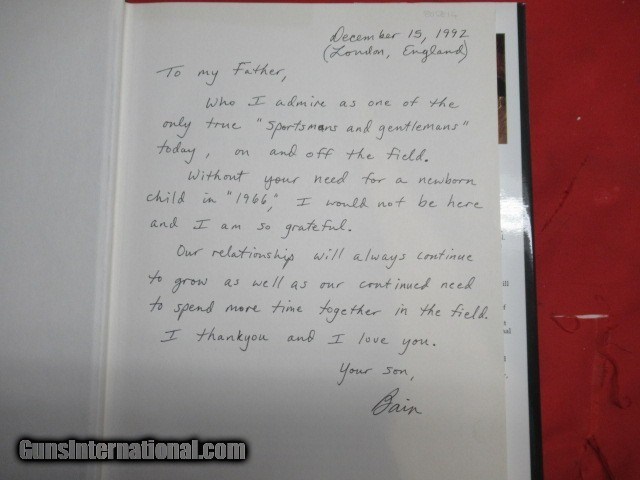 December 15, 1992
(London, England)
To my Father,
Who I admire as one of the
only true "Sportsmans and gentlemans"
today, on and off the field.
Without your need for a newborn
child in "1966," I would not be here
and I am so grateful.
Our relationship will always continue
to grow as well as our continued need
to spend more time together in the field.
I thankyou and I love you.
Your son,
Bain
GunsInternational.com